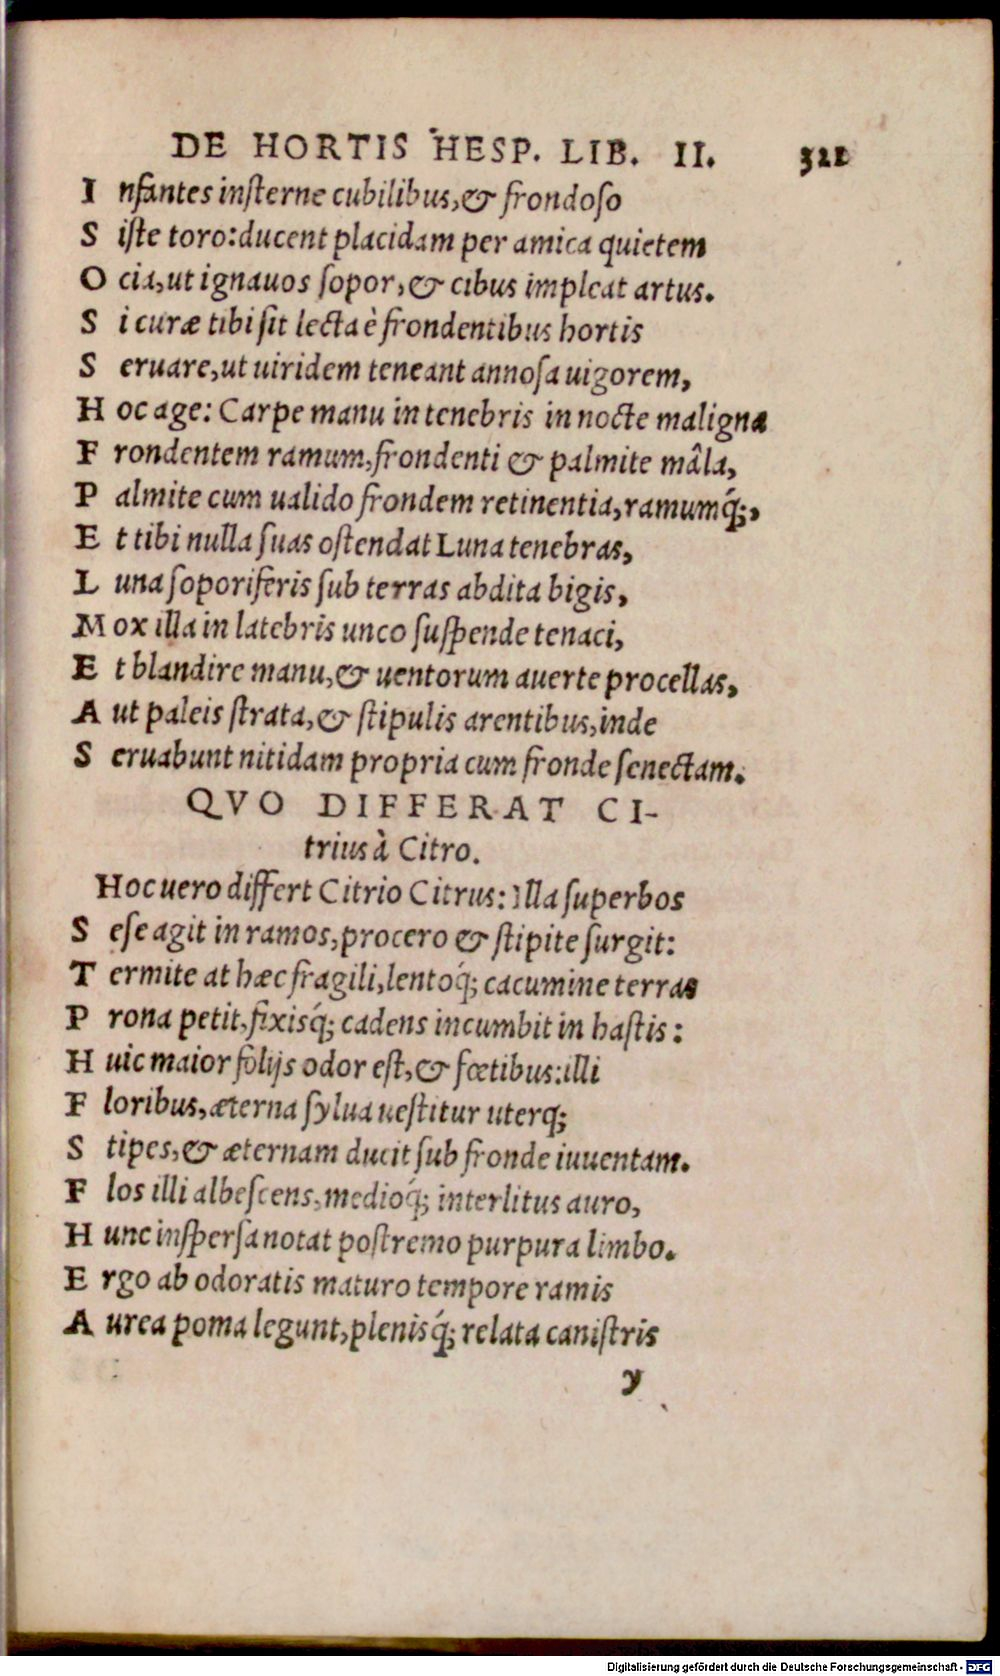 DE HORTIS HESP. LIB. II. 321
I nfantes insterne cubilibus, & frondoso
S iste toro: ducent placidam per amica quietem
O cia, ut ignauos sopor, & cibus impleat artus.
S i curæ tibi sit lecta è frondentibus hortis
S eruare, ut uiridem teneant annosa uigorem,
H oc age: Carpe manu in tenebris in nocte maligna
F rondentem ramum, frondenti & palmite mâla,
P almite cum ualido frondem retinentia, ramumq́;,
E t tibi nulla suas ostendat Luna tenebras,
L una soporiferis sub terras abdita bigis,
M ox illa in latebris unco suspende tenaci,
E t blandire manu, & uentorum auerte procellas,
A ut paleis strata, & stipulis arentibus, inde
S eruabunt nitidam propria cum fronde senectam.
QVO DIFFERAT CI-
trius à Citro.
Hoc uero differt Citrio Citrus: Illa superbos
S ese agit in ramos, procero & stipite surgit:
T ermite at hæc fragili, lentoq́; cacumine terras
P rona petit, fixisq́; cadens incumbit in hastis:
H uic maior folijs odor est, & fœtibus: illi
F loribus, æterna sylua uestitur uterq;
S tipes, & æternam ducit sub fronde iuuentam.
F los illi albescens, medioq́; interlitus auro,
H unc inspersa notat postremo purpura limbo.
E rgo ab odoratis maturo tempore ramis
A urea poma legunt, plenisq́; relata canistris
y
Digitalisierung gefördert durch die Deutsche Forschungsgemeinschaft - DFG